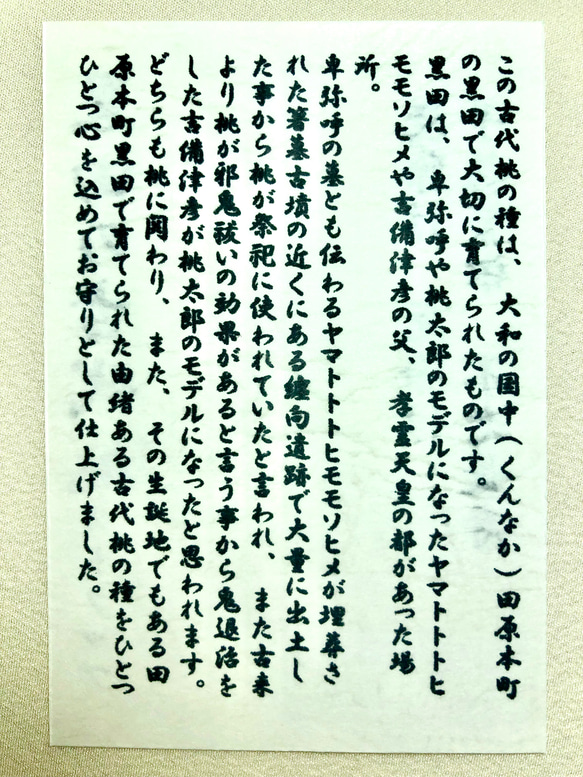 この古代桃の種は、大和の国中(くんなか)田原本町
の黒田で大切に育てられたものです。
黒田は、卑弥呼や桃太郎のモデルになったヤマトトトヒ
モモソヒメや吉備津彦の父、孝霊天皇の都があった場
所。
卑弥呼の墓とも伝わるヤマトトトヒモモソヒメが埋葬さ
れた箸墓古墳の近くにある纏向遺跡で大量に出土し
た事から桃が祭祀に使われていたと言われ、また古来
より桃が邪鬼祓いの効果があると言う事から鬼退治を
した吉備津彦が桃太郎のモデルになったと思われます。
どちらも桃に関わり、また、その生誕地でもある田
原本町黒田で育てられた由緒ある古代桃の種をひとつ
ひとつ心を込めてお守りとして仕上げました。